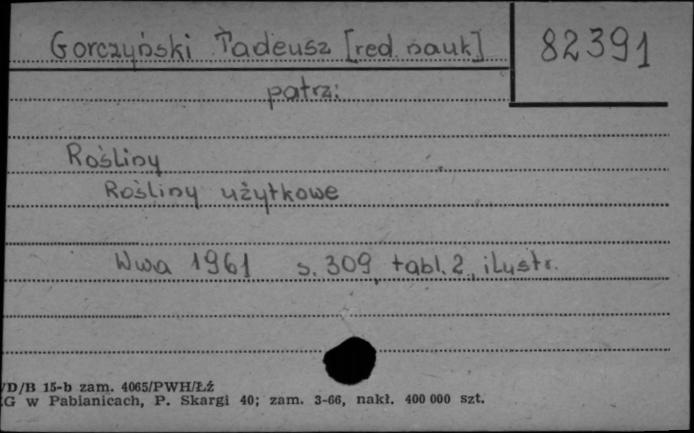 Gorczyński Tadeusz [red. nauk]
82391
patrz:
Rośliny
Rośliny użytkowe
Wwa 1961 s. 309, tabl. 2, ilustr.
/D/B 15-b zam. 4065/PWH/Łź
G w Pabianicach, P. Skargi 40; zam. 3-66, nakł. 400 000 szt.